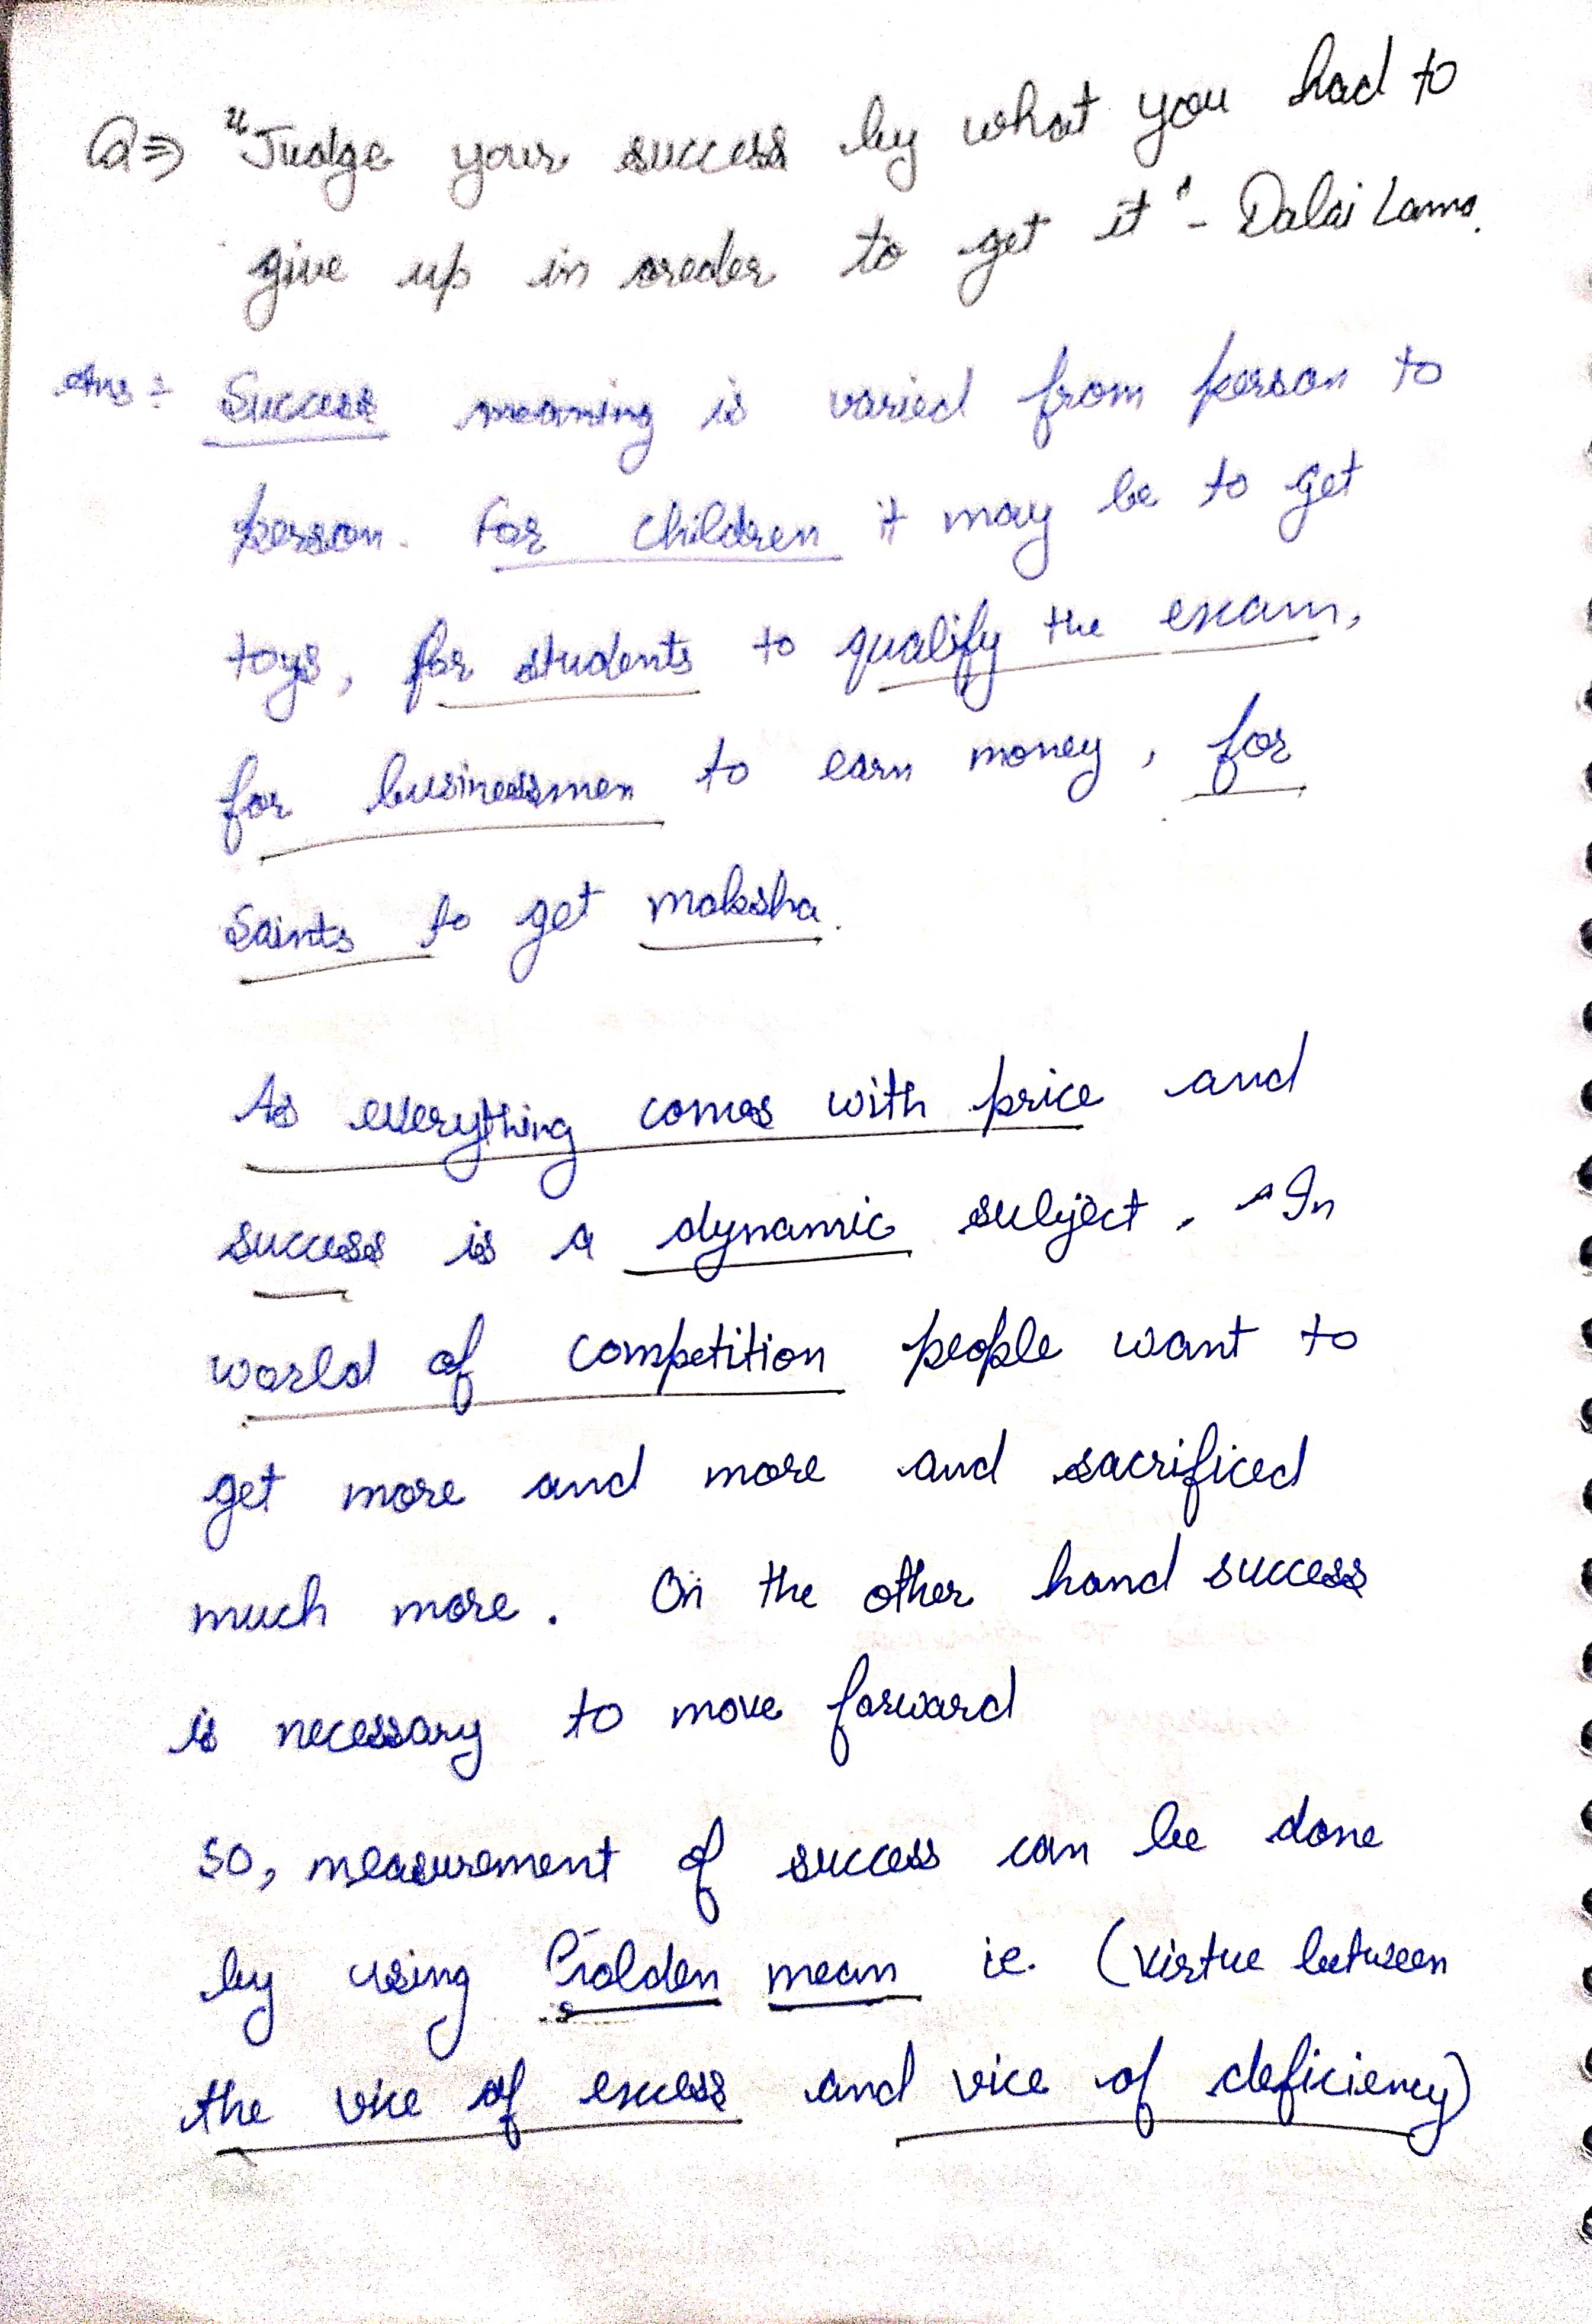 Q⇒ "Judge your success by what you had to
give up in order to get it" - Dalai Lama.
Ans: Success meaning is varied from person to
person. For children it may be to get
toys, for students to qualify the exam,
for businessmen to earn money, for
Saints to get moksha.
As everything comes with price and
success is a dynamic subject. In
world of competition people want to
get more and more and sacrificed
much more. On the other hand success
is necessary to move forward
So, measurement of success can be done
by using Golden mean ie. (Virtue between
the vice of excess and vice of deficiency)